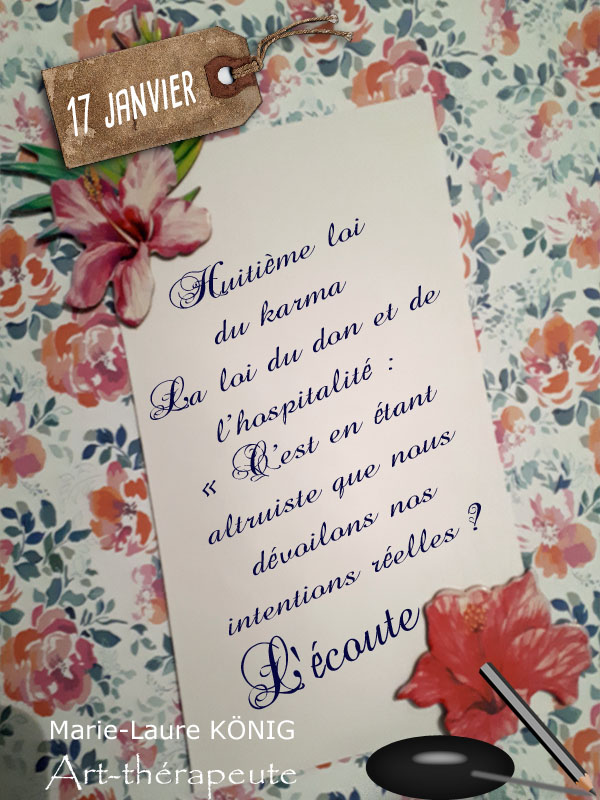 17 JANVIER
Huitième loi
du karma
La loi du don et de
l'hospitalité :
« C'est en étant
altruiste que nous
dévoilons nos
intentions réelles ?
L'écoute
Marie-Laure KÖNIG
Art-thérapeute